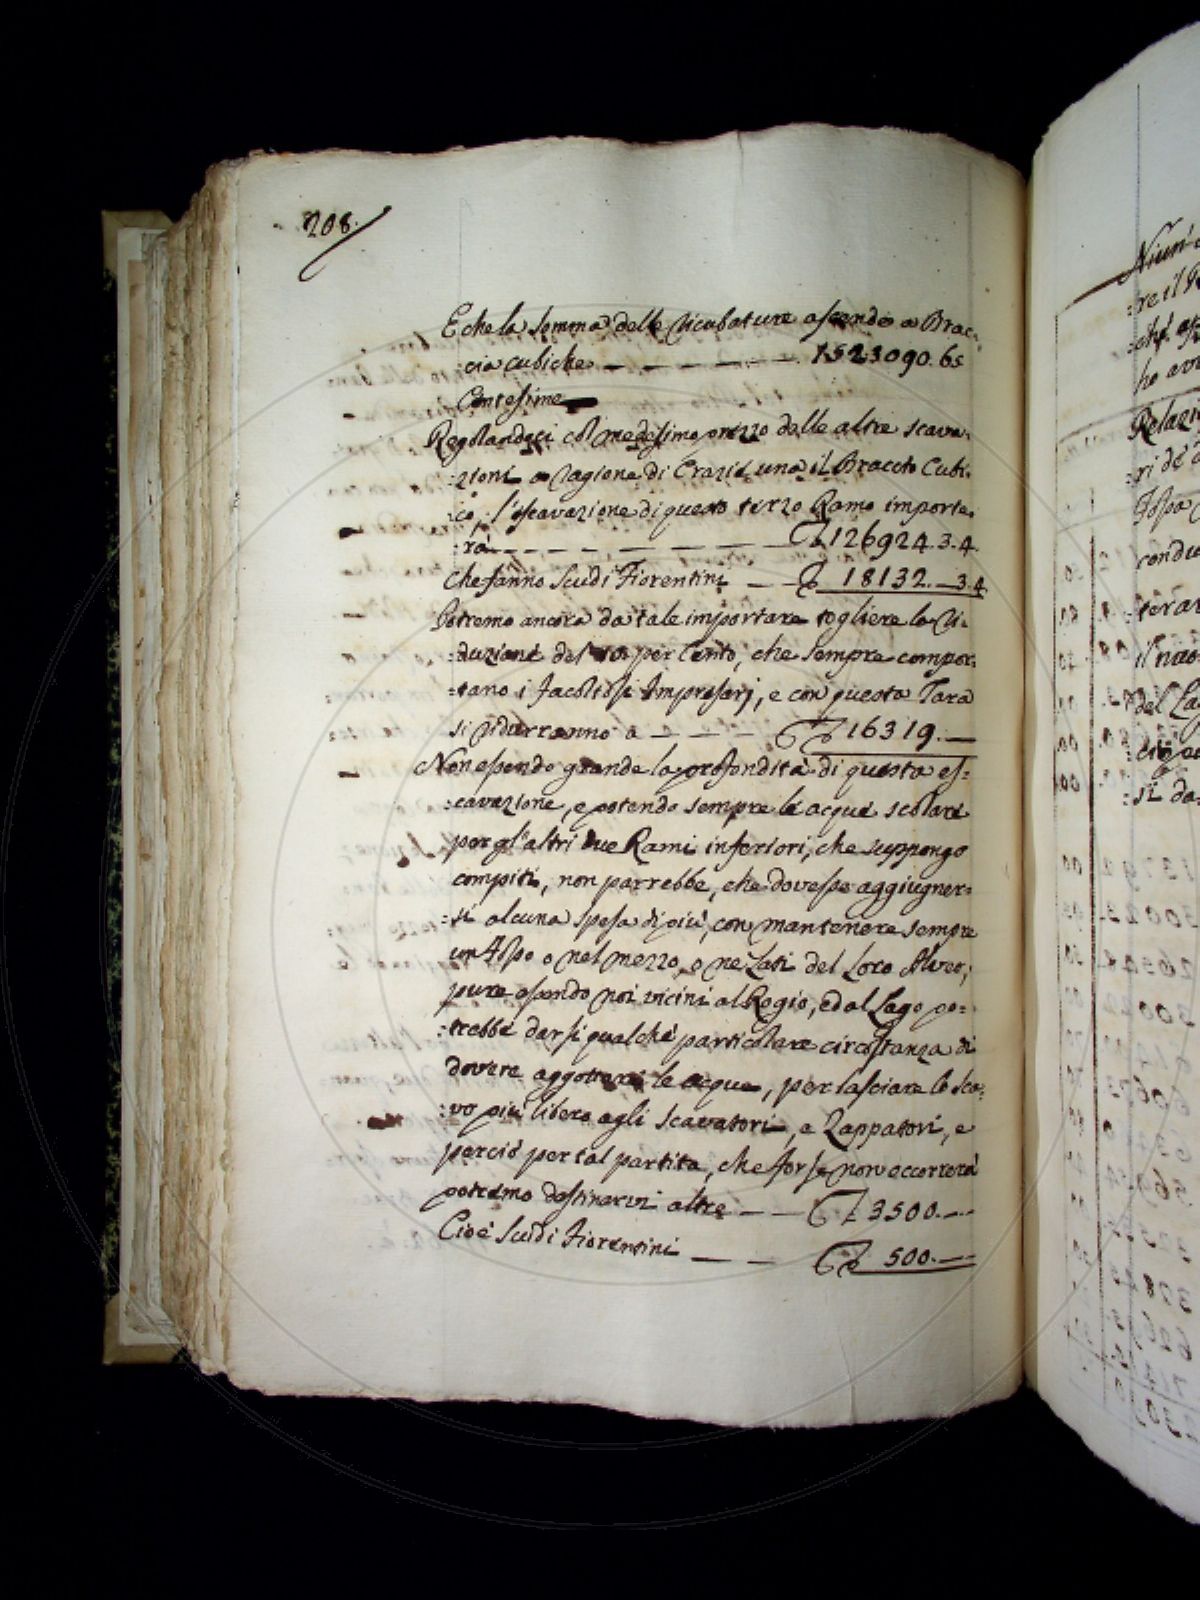 208.
E che la somma delle ricubature ascende a Brac-
:cia cubiche — — — — — 1523090.65
Centesime
Regolandoci col medesimo prezzo delle altre scava:
:zioni a ragione di Crazie una il Braccio Cubi:
:co, l'escavazione di questo terzo Ramo importe:
:rà — — — — — — — £ 126924.3.4
Che fanno Scudi Fiorentini — — 18132.—3.4
Potremo ancora da tale importare togliere la ri:
:duzione del 10 per Cento, che sempre compor:
:tano i facoltosi Impresarj, e con questa Tara
si ridurranno a — — — — 16319.—
Non essendo grande la profondità di questa es:
:cavazione, e potendo sempre le acque scolare
per gl'altri due Rami inferiori, che suppongo
compiti, non parrebbe, che dovesse aggiugner:
:si alcuna spesa di più, con mantenere sempre
un Aspo o nel mezzo, o ne Lati del Loro Alveo;
pure essendo noi vicini al Regio, ed al Lago po:
:trebbe darsi qualche particolare circostanza di
dovere aggottare le acque, per lasciare lo sca:
:vo più libero agli scavatori, e Zappatori, e
perciò per tal partita, che forse non occorrerà
potremo destinarvi altre — — £ 3500.—
Cioè Scudi Fiorentini — — 500.—
Niun'
:re il
ho
Relazi
:ri de'
condu
:terar
il
del La
:si da: